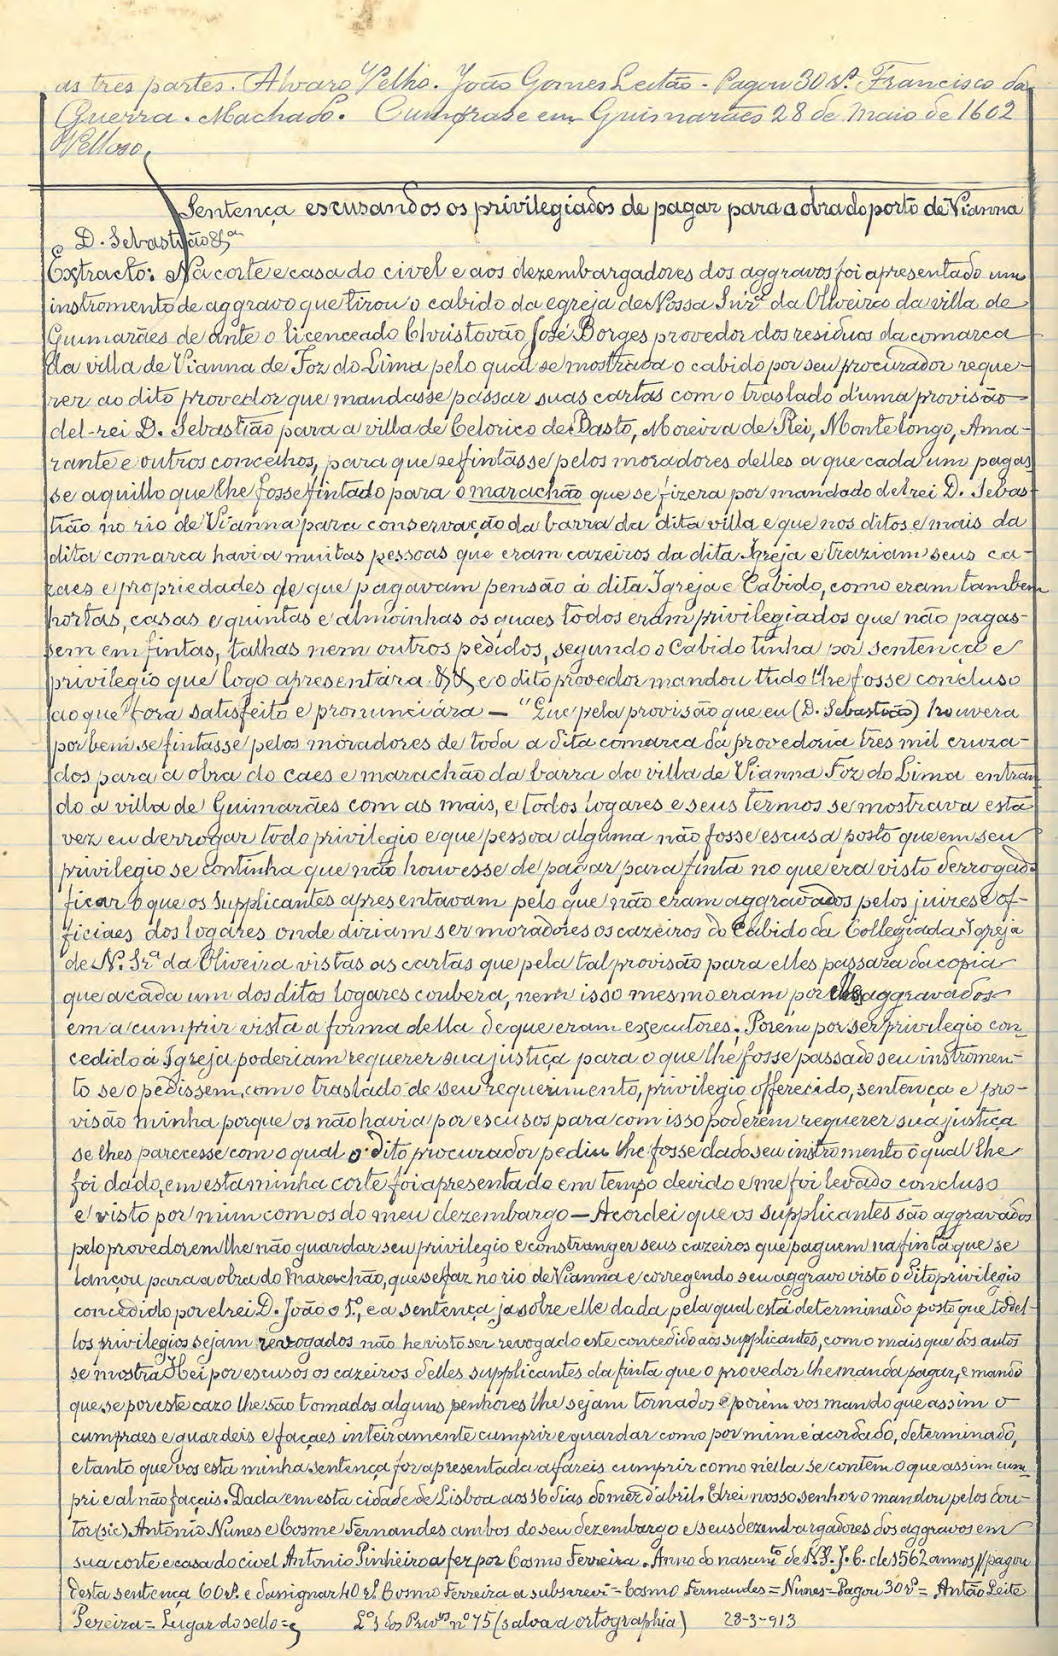 as tres partes. Alvaro Velho. João Gomes Leitão. Pagou 30 rs. Francisco da
Guerra. Machado. Cumprase em Guimarães 28 de Maio de 1602
Velloso
Sentença escusando os privilegiados de pagar para a obra do porto de Vianna
D. Sebastião
Extracto: Na corte e casa do civel e aos dezembargadores dos aggravos foi apresentado um
instromento de aggravo que tirou o cabido da egreja de Nossa Snrª da Oliveira da villa de
Guimarães de ante o licenceado Christovão José Borges provedor dos residuos da comarca
da villa de Vianna de Foz do Lima pelo qual se mostrava o cabido por seu procurador reque-
rer ao dito provedor que mandasse passar suas cartas com o traslado d'uma provisão
del-rei D. Sebastião para a villa de Celorico de Basto, Moreira de Rei, Montelongo, Ama-
rante e outros concelhos, para que se fintasse pelos moradores delles a que cada um pagas
se aquillo que lhe fosse fintado para o marachão que se fizera por mandado del rei D. Sebas
tião no rio de Vianna para conservação da barra da dita villa e que nos ditos e mais da
dita comarca havia muitas pessoas que eram cazeiros da dita Igreja e traziam seus ca-
zaes e propriedades de que pagavam pensão á dita Igreja e Cabido, como eram tambem
hortas, casas e quintas e almoinhas os quaes todos eram privilegiados que não pagas-
sem em fintas, talhas nem outros pedidos, segundo o Cabido tinha por sentença e
privilegio que logo apresentára && e o dito provedor mandou tudo lhe fosse concluso
ao que fora satisfeito e pronunciára — "Que pela provisão que eu (D. Sebastião) houvera
por bem se fintasse pelos moradores de toda a dita comarca da provedoria tres mil cruza-
dos para a obra do caes e marachão da barra da villa de Vianna Foz do Lima entran
do a villa de Guimarães com as mais, e todos logares e seus termos se mostrava esta
vez eu derrogar todo privilegio e que pessoa alguma não fosse escusa posto que em seu
privilegio se continha que não houvesse de pagar para finta no que era visto derrogado
ficar o que os supplicantes apresentavam pelo que não eram aggravados pelos juizes e of-
ficiaes dos logares onde diziam ser moradores os cazeiros do Cabido da Collegiada Igreja
de N. Srª da Oliveira vistas as cartas que pela tal provisão para elles passara da copia
que a cada um dos ditos logares coubera, nem isso mesmo eram por elles aggravados
em a cumprir vista a forma della de que eram executores. Porém por ser privilegio con-
cedido á Igreja poderiam requerer sua justiça para o que lhe fosse passado seu instromen-
to se o pedissem, com o traslado de seu requerimento, privilegio offerecido, sentença e pro-
visão minha porque os não havia por escusos para com isso poderem requerer sua justiça
se lhes parecesse com o qual o dito procurador pediu lhe fosse dado seu instromento o qual lhe
foi dado, em esta minha corte foi apresentado em tempo devido e me foi levado concluso
e visto por mim com os do meu dezembargo — Acordei que os supplicantes são aggravados
pelo provedor em lhe não guardar seu privilegio e constranger seus cazeiros que paguem na finta que se
lançou para a obra do Marachão, que se faz no rio de Vianna e corregendo seu aggravo visto o dito privilegio
concedido por elrei D. João o 1º, e a sentença já sobre elle dada pela qual está determinado posto que todel-
los privilegios sejam revogados não he visto ser revogado este concedido aos supplicantes, com o mais que dos autos
se mostra Hei por escusos os cazeiros delles supplicantes da finta que o provedor lhe manda pagar, e mando
que se por este cazo lhe são tomados alguns penhores lhe sejam tornados e porém vos mando que assim o
cumpraes e guardeis e façaes inteiramente cumprir e guardar como por mim é acordado, determinado,
e tanto que vos esta minha sentença for apresentada a fareis cumprir como n'ella se contém o que assim cum
pri e al não façais. Dada em esta cidade de Lisboa aos 16 dias do mez d'abril. Elrei nosso senhor o mandou pelos dou-
tor (sic) Antonio Nunes e Cosme Fernandes ambos do seu dezembargo e seus dezembargadores dos aggravos em
sua corte e casa do civel Antonio Pinheiro a fez por Cosmo Ferreira. Anno do nascimto de N. S. J. C. de 1562 annos // pagou
desta sentença 60 rs. e d'asignar 40 rs. Cosmo Ferreira a subscrevi = Cosmo Fernandes = Nunes = Pagou 30 rs = Antão Leite
Pereira = Lugar do sello = Lº dos Privos nº 75 (salva a ortographia) 28-3-913